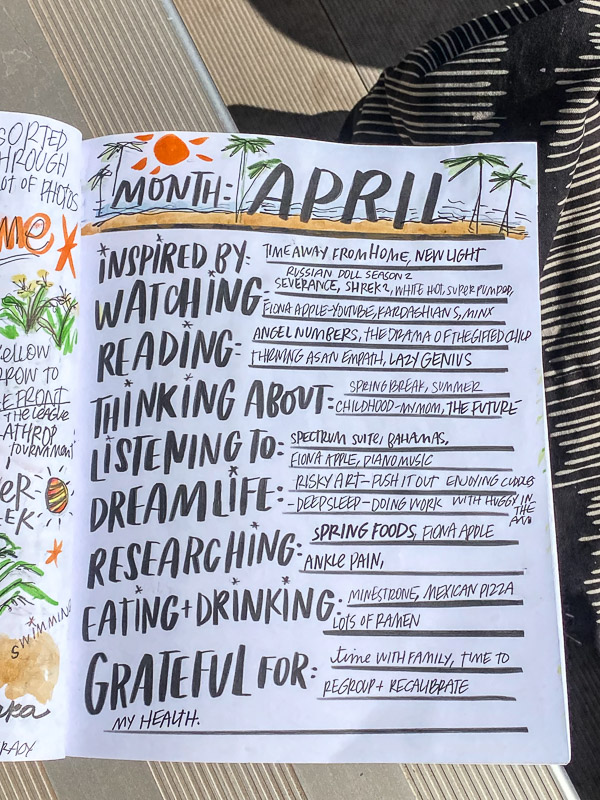 SORTED
THROUGH
LOT OF PHOTOS
ME
YELLOW
HOW TO
FRONT
THE LEAGUE
LATHROP
TOURNAMENT
SWIMMING
MONTH: APRIL
INSPIRED BY: TIME AWAY FROM HOME, NEW LIGHT
RUSSIAN DOLL SEASON 2
WATCHING: SEVERANCE, SHREK 2, WHITE HOT, SUPER PUMPED,
FIONA APPLE-YOUTUBE, KARDASHIANS, MINX
READING: ANGEL NUMBERS, THE DRAMA OF THE GIFTED CHILD
THRIVING AS AN EMPATH, LAZY GENIUS
THINKING ABOUT: SPRING BREAK, SUMMER
CHILDHOOD-MY MOM, THE FUTURE
LISTENING TO: SPECTRUM SUITE, BAHAMAS,
FIONA APPLE, PIANO MUSIC
DREAM LIFE: RISKY ART-PUSH IT OUT ENJOYING CUDDLES
-DEEP SLEEP-DOING WORK WITH HUGGY IN
THE AM
RESEARCHING: SPRING FOODS, FIONA APPLE
ANKLE PAIN,
EATING+DRINKING: MINESTRONE, MEXICAN PIZZA
LOTS OF RAMEN
GRATEFUL FOR: time WITH FAMILY, TIME TO
REGROUP + RECALIBRATE
MY HEALTH.